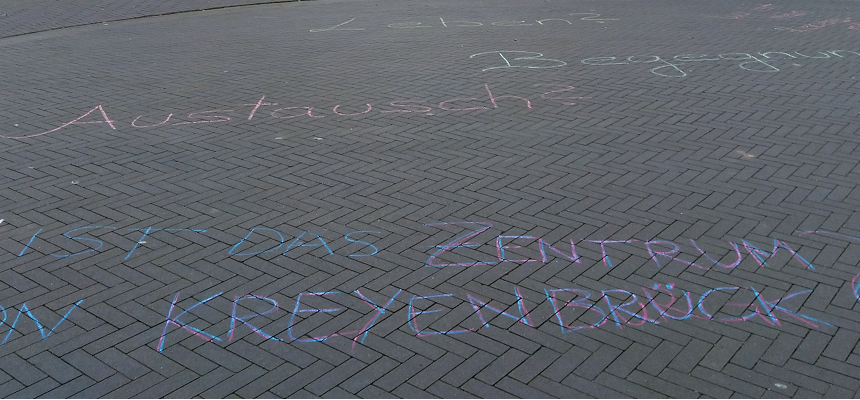 Leben?
Begegnun
Austausch?
IST DAS ZENTRUM
ON KREYENBRÜCK